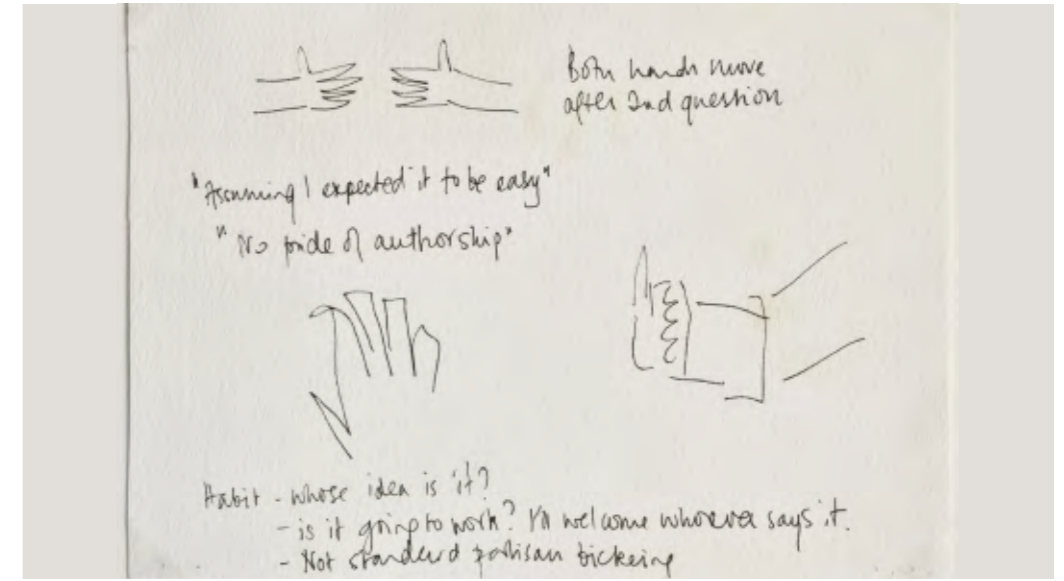 Both hands move
after 2nd question
"Assuming I expected it to be easy"
"No pride of authorship"
Habit - whose idea is it?
- is it going to work? I'll welcome whoever says it.
- Not standard partisan bickering